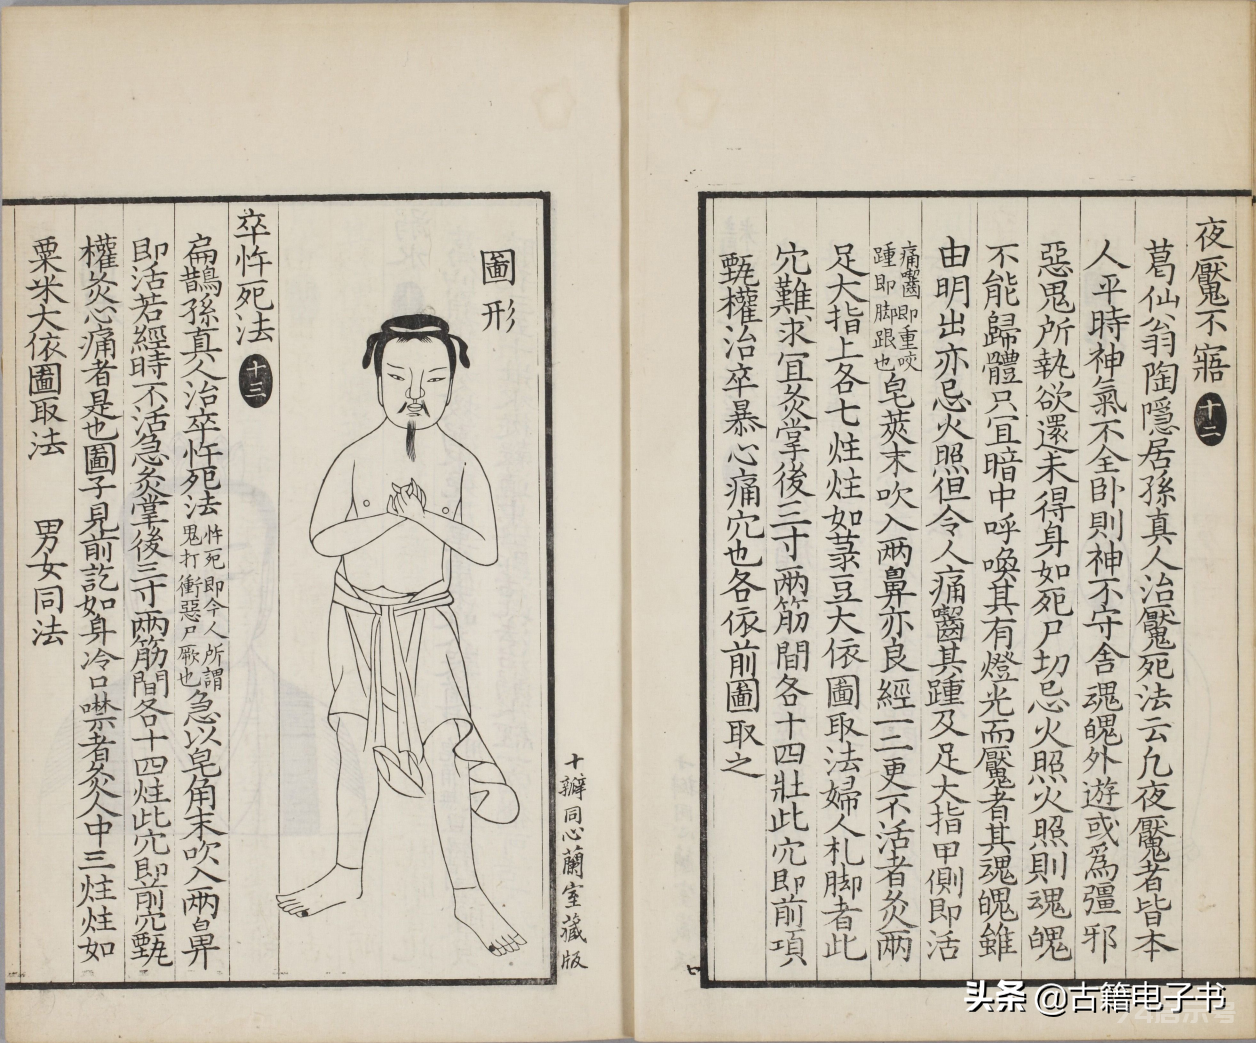 夜魘不寤 十二
葛仙翁陶隱居孫真人治魘死法云凡夜魘者皆本
人平時神氣不全卧則神不守舍魂魄外遊或爲彊邪
惡鬼所執欲還未得身如死尸切忌火照火照則魂魄
不能歸體只宜暗中呼喚其有燈光而魘者其魂魄雖
由明出亦忌火照但令人痛嚙其踵及足大指甲側即活
痛嚙即重咬
踵即脚跟也
皂莢末吹入兩鼻亦良經一二更不活者灸兩
足大指上各七炷炷如菉豆大依圖取法婦人札脚者此
穴難求宜灸掌後三寸兩筋間各十四壯此穴即前項
甄權治卒暴心痛穴也各依前圖取之
圖形
十瓣同心蘭室藏版
卒忤死法 十三
扁鵲孫真人治卒忤死法
忤死即今人所謂
鬼打衝惡尸厥也
急以皂角末吹入兩鼻
即活若經時不活急灸掌後三寸兩筋間各十四炷此穴即前穴甄
權灸心痛者是也圖子見前訖如身冷口噤者灸人中三炷炷如
粟米大依圖取法 男女同法
头条 @古籍电子书